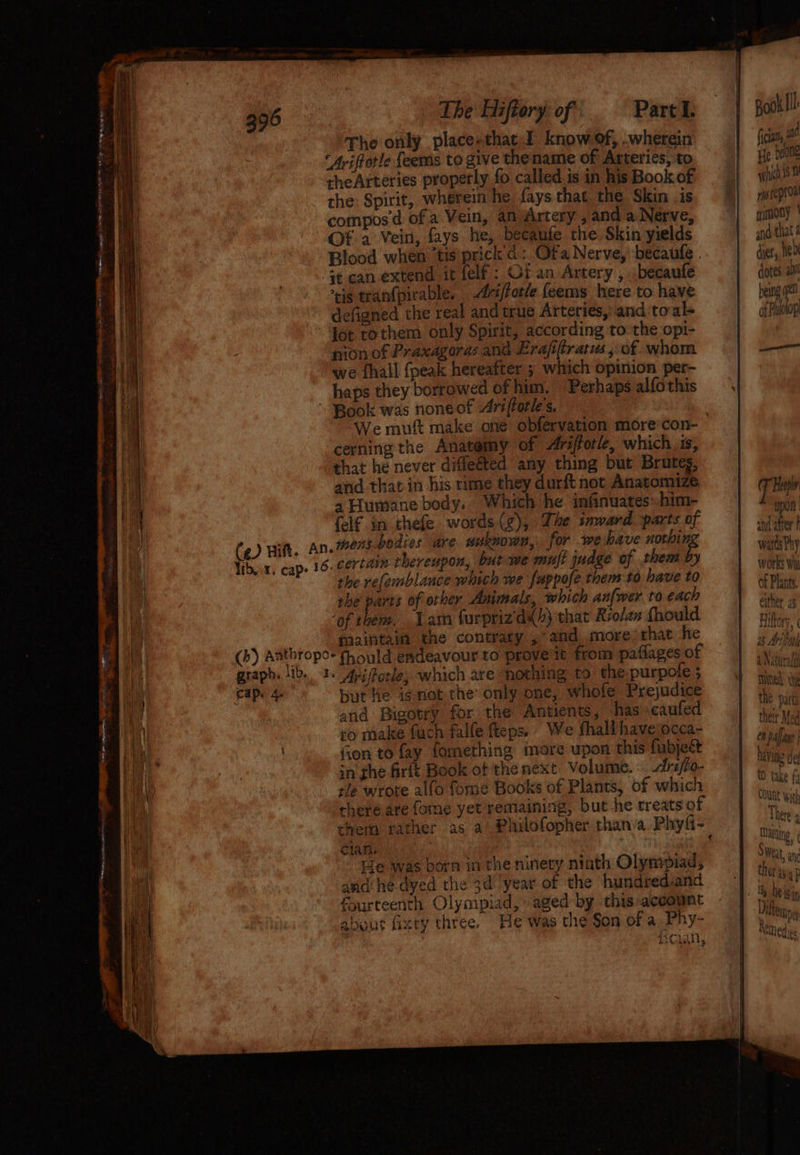 396 The Hiſtory of Part I.
The only place that I know of, wherein
Ariſtotle ſeems to give the name of Arteries, to
the Arteries properly ſo called is in his Book of
the Spirit, wherein he ſays that the Skin is
compos'd of a Vein, an Artery, and a Nerve,
Of a Vein, ſays he, becauſe the Skin yields
Blood when 'tis prick'd: Of a Nerve, becauſe
it can extend it ſelf: Of an Artery, becauſe
'tis tranſpirable. Ariſtotle ſeems here to have
deſigned the real and true Arteries, and to al-
lot to them only Spirit, according to the opi-
nion of Praxagoras and Eraſiſtratus, of whom
we ſhall ſpeak hereafter; which opinion per-
haps they borrowed of him. Perhaps alſo this
Book was none of Ariſtotle's.
We muſt make one obſervation more con-
cerning the Anatomy of Ariſtotle, which is,
that he never diſſected any thing but Brutes,
and that in his time they durſt not Anatomize
a Humane body. Which he inſinuates him-
ſelf in theſe words (g), The inward parts of
(g) Hiſt. An. mens bodies are unknown, for we have nothing
lib. 1. cap. 16. certain thereupon, but we muſt judge of them by
the reſemblance which we ſuppoſe them to have to
the parts of other Animals, which anſwer to each
of them. I am ſurpriz'd (h) that Riolan ſhould
maintain the contrary, and more that he
(h) Anthropo- ſhould endeavour to prove it from paſſages of
graph. lib. 1. Ariſtotle, which are nothing to the purpoſe;
cap. 4. but he is not the only one, whoſe Prejudice
and Bigotry for the Antients, has cauſed
to make ſuch falſe ſteps. We ſhall have occa-
ſion to ſay ſomething more upon this ſubject
in the firſt Book of the next Volume. Ariſto-
tle wrote alſo ſome Books of Plants, of which
there are ſome yet remaining, but he treats of
them rather as a Philoſopher than a Phyſi-
cian.
He was born in the ninety ninth Olympiad,
and he dyed the 3d year of the hundred and
fourteenth Olympiad, aged by this account
about ſixty three. He was the Son of a Phy-
ſician,